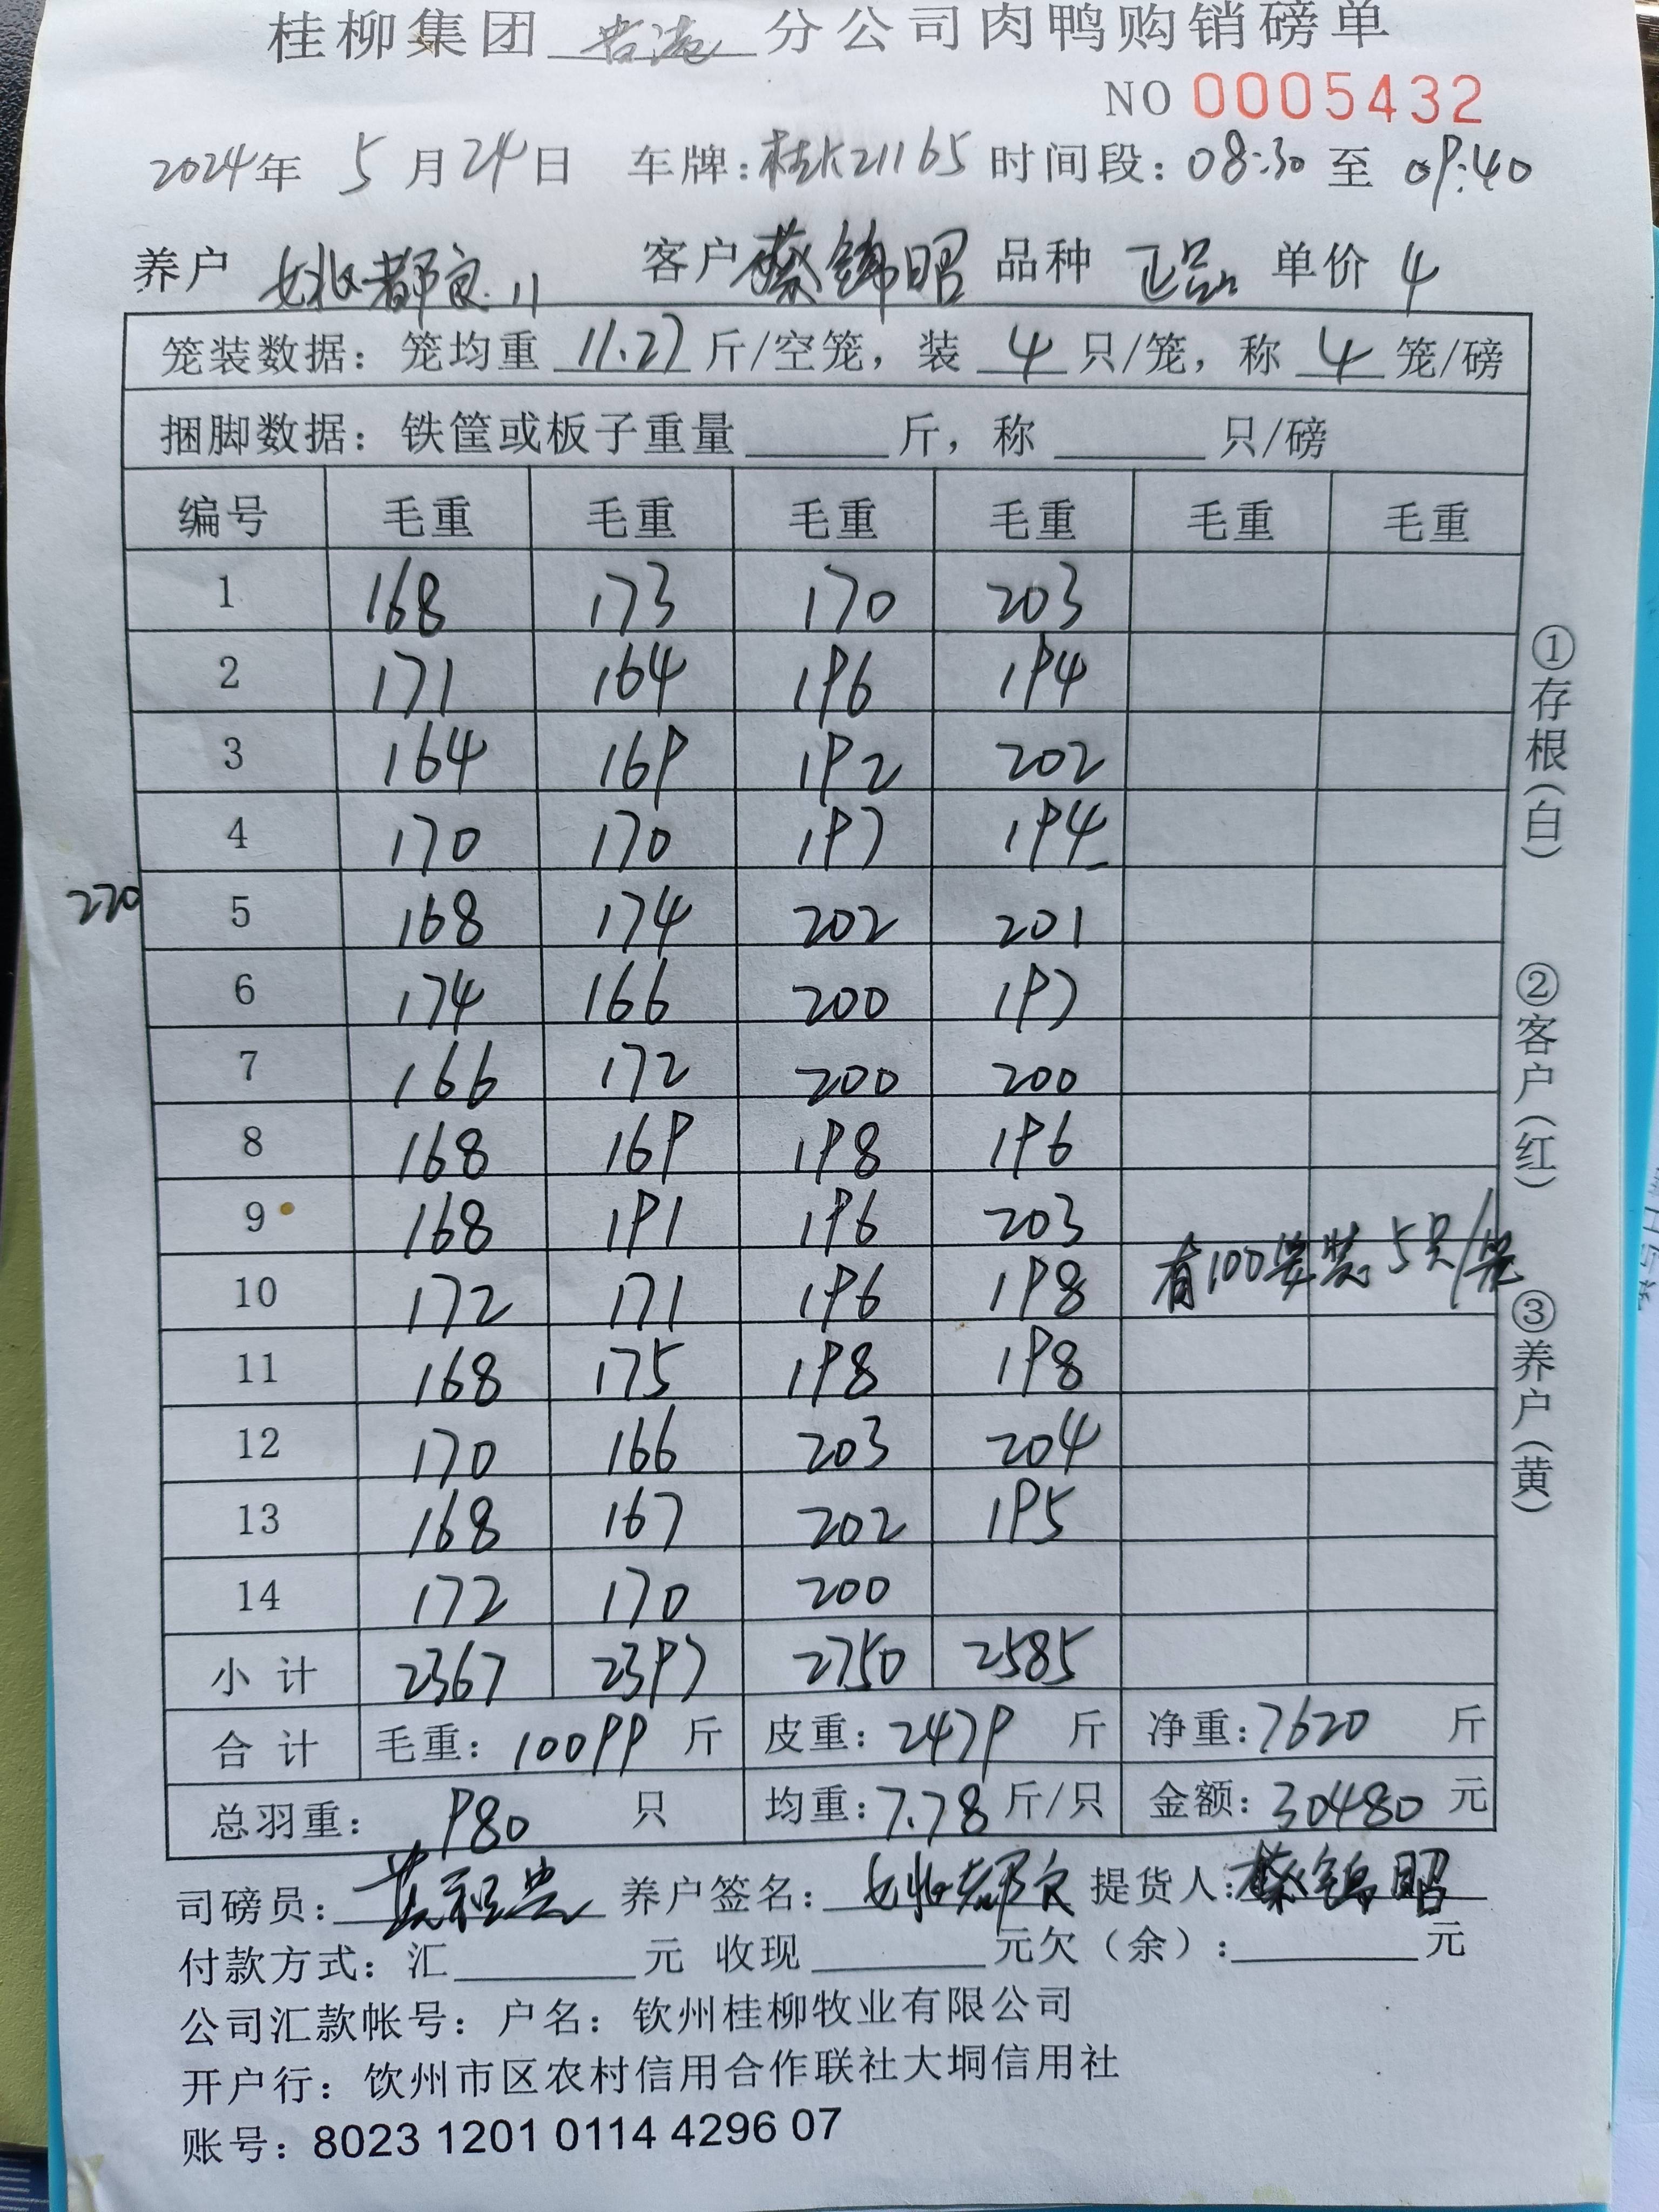 桂柳集团 分公司肉鸭购销磅单
NO 0005432
2024年 5月24日 车牌:桂K21165 时间段:08:30 至 09:40
养户 姚都良 客户 蔡锦昭 品种 正品 单价 4
笼装数据:笼均重 11.27 斤/空笼,装 4 只/笼,称 4 笼/磅
捆脚数据:铁筐或板子重量 斤,称 只/磅
编号 毛重 毛重 毛重 毛重 毛重 毛重
1 168 173 170 203
2 171 164 196 194
3 164 169 192 202
4 170 170 197 194
220
5 168 174 202 201
6 174 166 200 197
7 166 172 200 200
8 168 169 198 196
9 168 191 196 203
10 172 171 196 198 有100笼装5只/笼
11 168 175 198 198
12 170 166 203 204
13 168 167 202 195
14 172 170 200
小计 2367 2397 2750 2585
合计 毛重:10099 斤 皮重:2479 斤 净重:7620 斤
总羽重:980 只 均重:7.78 斤/只 金额:30480 元
司磅员: 养户签名:姚都良 提货人:蔡锦昭
付款方式:汇 元 收现 元欠(余): 元
公司汇款帐号:户名:钦州桂柳牧业有限公司
开户行:钦州市区农村信用合作联社大垌信用社
账号:8023 1201 0114 4296 07
①存根(白)
②客户(红)
③养户(黄)